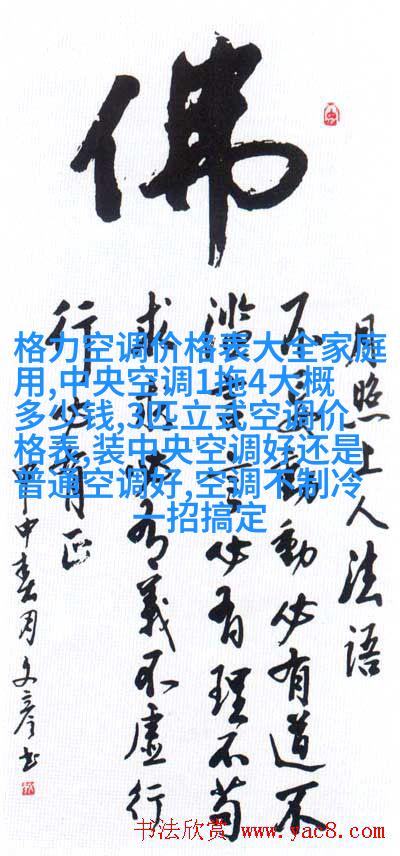 佛
月照上人法語
不妄動動必有道不
必有理不苟
求求必有義不虚行
行必有正
甲申春月文彦书
格力空调价格表大全家庭
用,中央空调1拖4大概
多少钱,3匹立式空调价
格表,装中央空调好还是
普通空调好,空调不制冷
一招搞定
书法欣赏 www.yac8.com